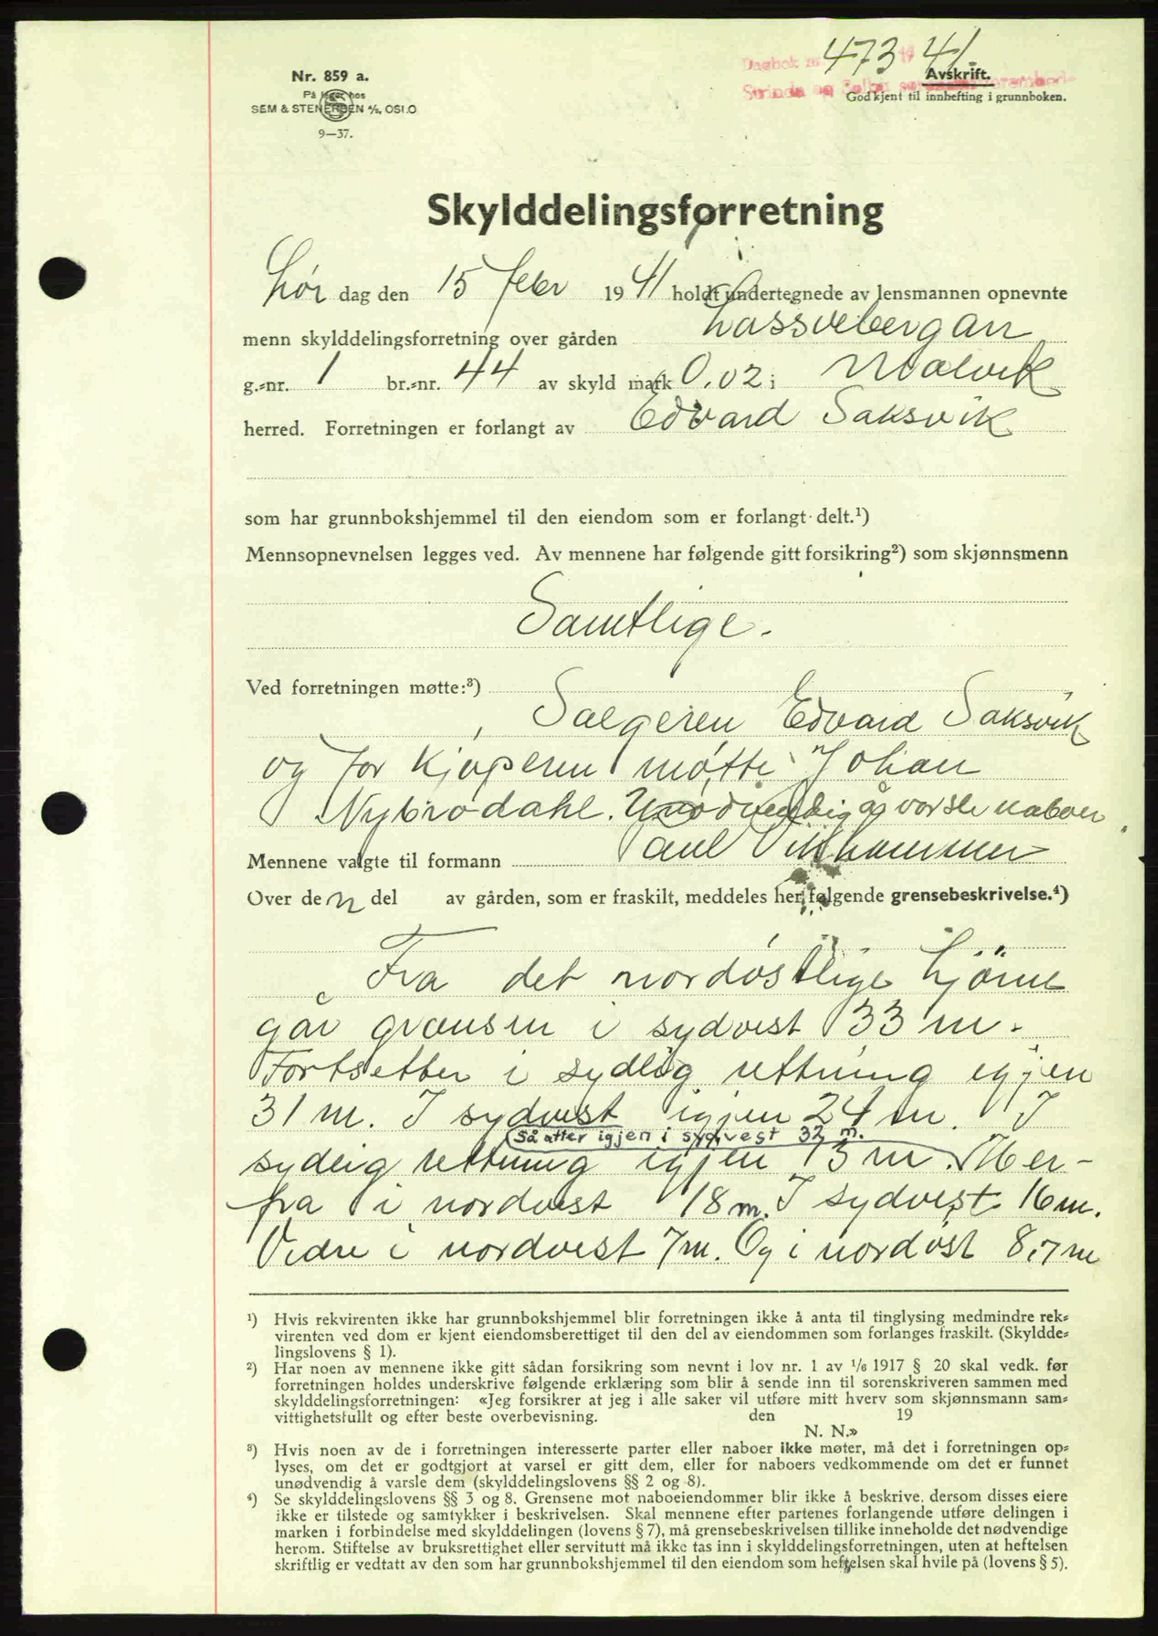 Dagbok nr. 473 19 41
Nr. 859 a.
På lager hos
SEM & STENERSEN A/S, OSLO
9—37.
Avskrift.
Strinda og Selbu sorenskriverembede
Godkjent til innhefting i grunnboken.
Skylddelingsforretning
Lør dag den 15 febr 1941 holdt undertegnede av lensmannen opnevnte
menn skylddelingsforretning over gården Lassvebergan
g.-nr. 1 br.-nr. 44 av skyld mark 0,02 i Malvik
herred. Forretningen er forlangt av Edvard Saksvik
som har grunnbokshjemmel til den eiendom som er forlangt delt.¹)
Mennsopnevnelsen legges ved. Av mennene har følgende gitt forsikring²) som skjønnsmenn
Samtlige.
Ved forretningen møtte:³)
Sælgeren Edvard Saksvik
og for kjøperen møtte Johan
Nybrodahl. Unødvendig å varsle naboer
Mennene valgte til formann Paul
Over den del av gården, som er fraskilt, meddeles her følgende grensebeskrivelse.⁴)
Fra det nordøstlige hjörne
går grænsen i sydvest 33 m.
Fortsetter i sydlig rettning igjen
31 m. I sydvest igjen 24 m. I
Så atter igjen i sydvest 32 m.
sydlig rettning igjen 13 m. Her-
fra i nordvest 18 m. I sydvest 16 m.
Vidre i nordvest 7 m. Og i nordöst 8,7 m
¹) Hvis rekvirenten ikke har grunnbokshjemmel blir forretningen ikke å anta til tinglysing medmindre rek-
virenten ved dom er kjent eiendomsberettiget til den del av eiendommen som forlanges fraskilt. (Skyldde-
lingslovens § 1).
²) Har noen av mennene ikke gitt sådan forsikring som nevnt i lov nr. 1 av 1/6 1917 § 20 skal vedk. før
forretningen holdes underskrive følgende erklæring som blir å sende inn til sorenskriveren sammen med
skylddelingsforretningen: «Jeg forsikrer at jeg i alle saker vil utføre mitt hverv som skjønnsmann sam-
vittighetsfullt og efter beste overbevisning. den 19
N. N.»
³) Hvis noen av de i forretningen interesserte parter eller naboer ikke møter, må det i forretningen op-
lyses, om det er godtgjort at varsel er gitt dem, eller for naboers vedkommende om det er funnet
unødvendig å varsle dem (skylddelingslovens §§ 2 og 8).
⁴) Se skylddelingslovens §§ 3 og 8. Grensene mot naboeiendommer blir ikke å beskrive, dersom disses eiere
ikke er tilstede og samtykker i beskrivelsen. Skal mennene efter partenes forlangende utføre delingen i
marken i forbindelse med skylddelingen (lovens § 7), må grensebeskrivelsen tillike inneholde det nødvendige
herom. Stiftelse av bruksrettighet eller servitutt må ikke tas inn i skylddelingsforretningen, uten at heftelsen
skriftlig er vedtatt av den som har grunnbokshjemmel til den eiendom som heftelsen skal hvile på (lovens § 5).